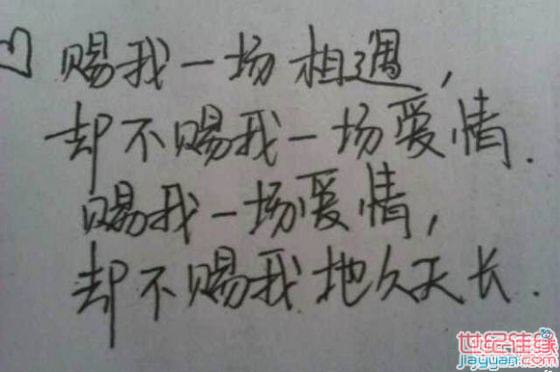 赐我一场相遇,
却不赐我一场爱情.
赐我一场爱情,
却不赐我地久天长.
世纪佳缘
jiayuan.com